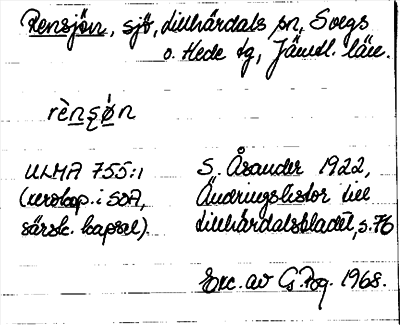 Rensjön, sjö, Lillhärdals sn, Svegs
o. Hede tg, Jämtl. län.
rènsɷ́n
ULMA 755:1 S. Åsander 1922,
(xerokop. i SOA, Ändringslistor till
särsk. kapsel). Lillhärdalsbladet, s. 76
Exc. av G. Fog. 1968.